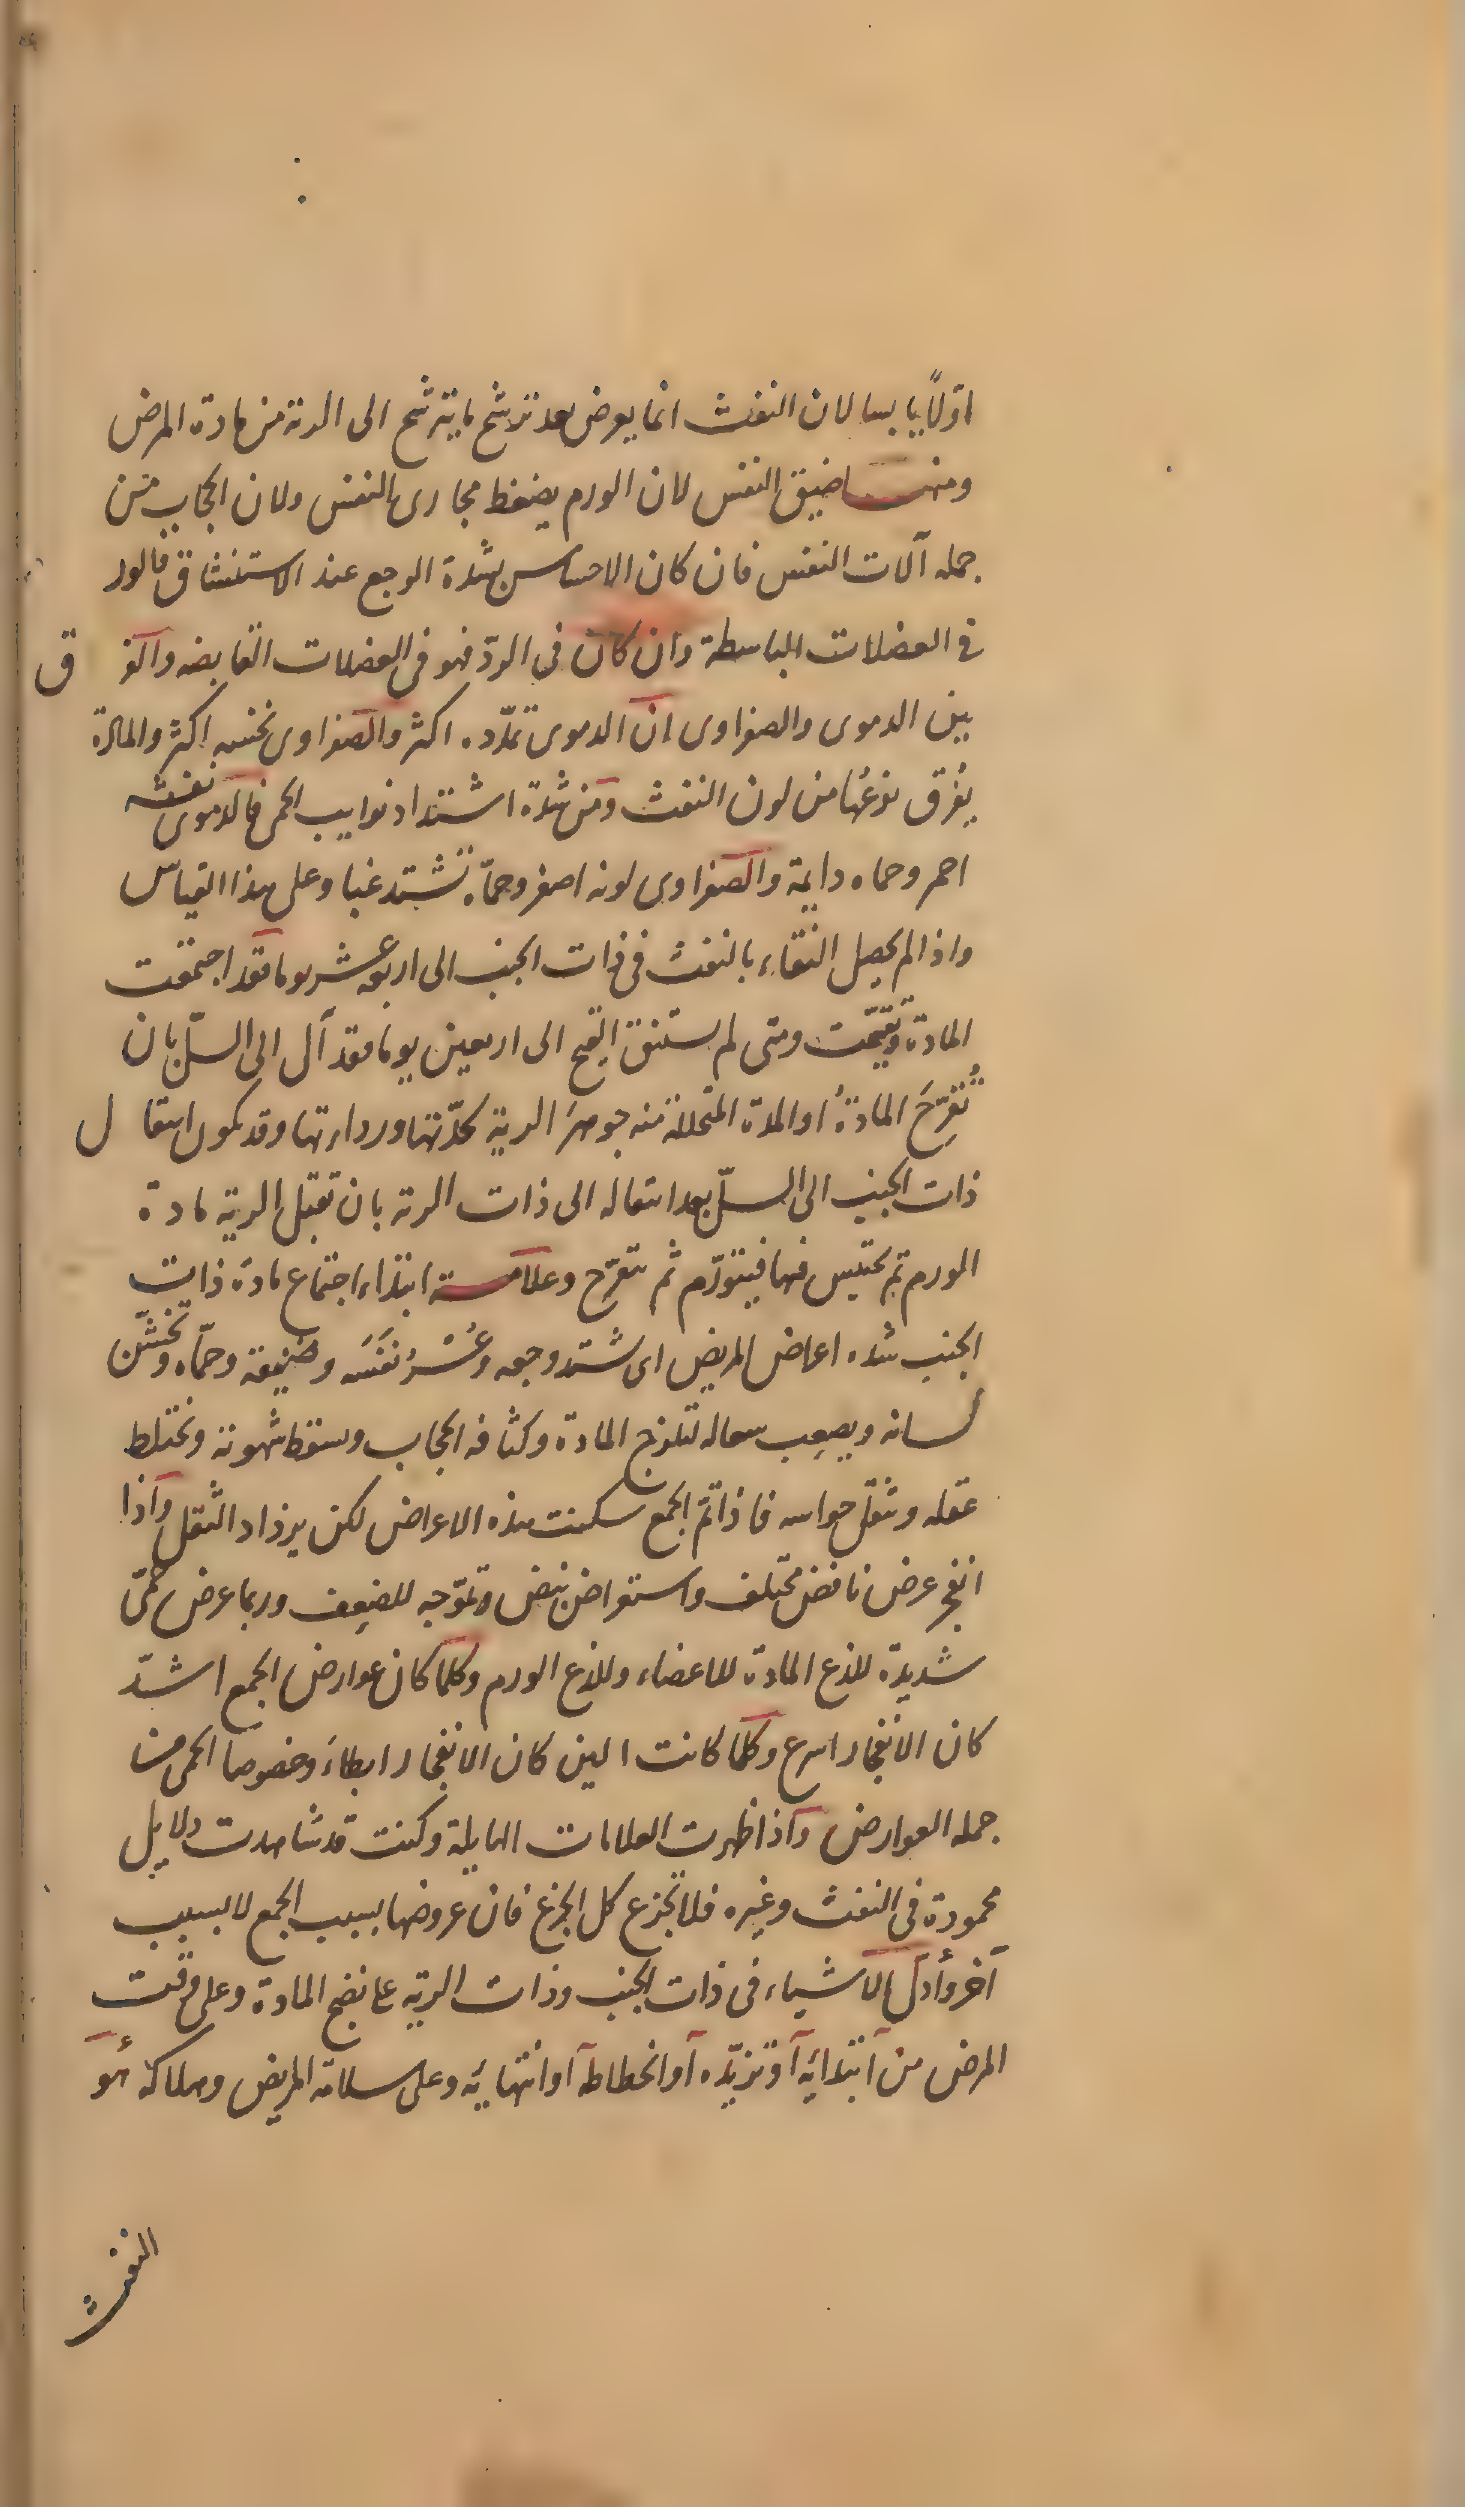 اوّلاً يابسا لان النفث انما يعرض بعد ترشح ما يترشح الى الرية من مادة المرض
ومنها ضيق النفس لان الورم يضغط مجارى النفس ولان الحجاب من
جملة آلات النفس فان كان الاحساس بشدة الوجع عند الاستنشاق فالور
فى العضلات الباسطة وان كان فى الردّ فهو فى العضلات القابضه والفر ق
بين الدموى والصفراوى ان الدموى تمدّده اكثر والصفراوى نخسه اكثر والمادة
يفرق نوعُها من لون النفث ومن شدة اشتداد نوايب الحمى فالدموى نفثه
احمر وحماه دايمة والصفراوى لونه اصفر وحمّاه تشتد غبا وعلى هذا القياس
واذا لم يحصل النقاء بالنفث فى ذات الجنب الى اربعة عشر يوما فقد اجتمعت
المادة وتقيّحت ومتى لم يستنق القيح الى اربعين يوما فقد آل الى السلّ بان
تُقرِّحَ المادةُ او المدة المتحللة منه جوهرَ الرية بحدّتها ورداءتها وقد يكون انتقا ل
ذات الجنب الى السلّ بعد انتقاله الى ذات الرية بان تقبل الرية مادة
الورم ثم تحتبس فيها فيتورّم ثم تتقرّح وعلامة ابتداء اجتماع مادة ذات
الجنب شده اعراض المريض اى شتد وجعه وعُسْرُ نفَسَه وضيقه وحمّاه وتخشّن
لسانه ويصعب سعاله لتلزج المادة وكثافه الحجاب وسقط شهوته ويختلط
عقله ويثقل حواسه فاذا تمّ الجمع سكنت هذه الاعراض لكن يزداد الثقل واذا
انفجر عرض نافض مختلف واستعراض نبض وتموّجه للضعف وربما عرض حُمّى
شديدة للذع المادة للاعضاء وللذع الورم وكلما كان عوارض الجمع اشدّ
كان الانفجار اسرع وكلما كانت الين كان الانفجار ابطاء وخصوصا الحمى من
جملة العوارض واذا ظهرت العلامات الهايلة وكنت قد شاهدت دلايل
محمودة فى النفث وغيره فلا تجزع كل الجزع فان عروضها بسبب الجمع لا بسبب
آخر وأدلّ الاشياء فى ذات الجنب وذات الرية على نضج المادة وعلى وقت
المرض من ابتدائه أو تزيّده أو انحطاطه أو انتهايه وعلى سلامة المريض وهلاكه هُو
النفث